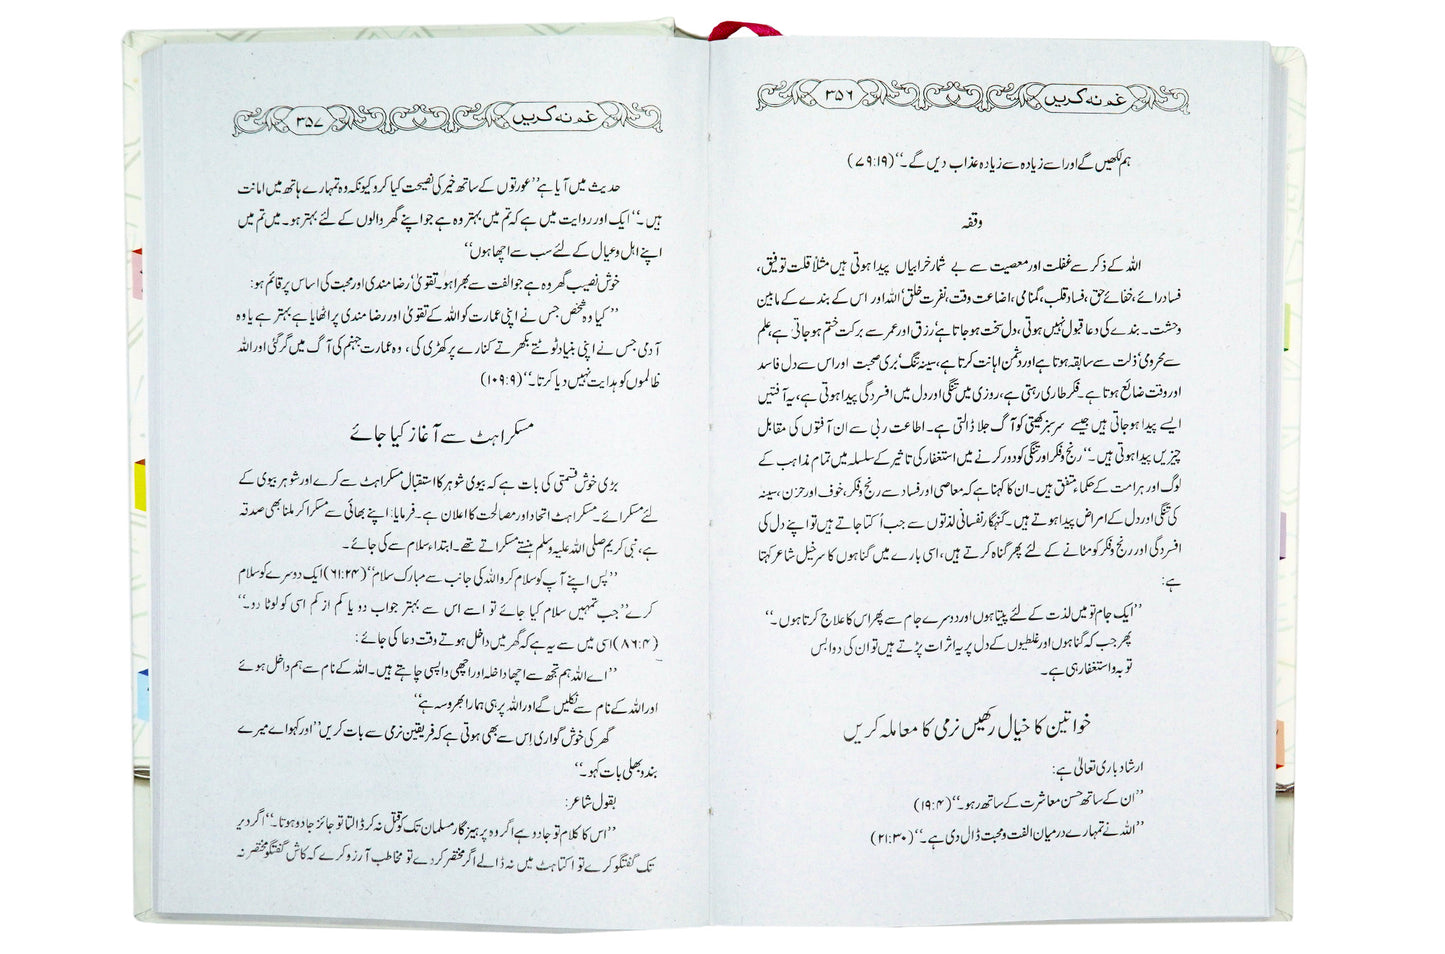 غم نہ کریں
۳۵۶
ہم لکھیں گے اور اسے زیادہ سے زیادہ عذاب دیں گے۔‘‘ (۷۹:۱۹)
وقفہ
اللہ کے ذکر سے غفلت اور معصیت سے بے شمار خرابیاں پیدا ہوتی ہیں مثلاً قلت توفیق،
فساد رائے، خفائے حق، فساد قلب، گمنامی، اضاعت وقت، نفرت خلق‘ اللہ اور اس کے بندے کے مابین
وحشت۔ بندے کی دعا قبول نہیں ہوتی، دل سخت ہو جاتا ہے‘ رزق اور عمر سے برکت ختم ہو جاتی ہے، علم
سے محرومی‘ ذلت سے سابقہ ہوتا ہے اور دشمن اہانت کرتا ہے، سینہ تنگ‘ بری صحبت اور اس سے دل فاسد
اور وقت ضائع ہوتا ہے۔ فکر طاری رہتی ہے، روزی میں تنگی اور دل میں افسردگی پیدا ہوتی ہے، یہ آفتیں
ایسے پیدا ہو جاتی ہیں جیسے سرسبز کھیتی کو آگ جلا ڈالتی ہے۔ اطاعت ربی سے ان آفتوں کی مقابل
چیزیں پیدا ہوتی ہیں۔‘‘ رنج و فکر اور تنگی کو دور کرنے میں استغفار کی تاثیر کے سلسلہ میں تمام مذاہب کے
لوگ اور ہر امت کے حکماء متفق ہیں۔ ان کا کہنا ہے کہ معاصی اور فساد سے رنج و فکر، خوف اور حزن، سینہ
کی تنگی اور دل کے امراض پیدا ہوتے ہیں۔ گنہگار نفسانی لذتوں سے جب اُکتا جاتے ہیں تو اپنے دل کی
افسردگی اور رنج و فکر کو مٹانے کے لئے پھر گناہ کرتے ہیں، اسی بارے میں گناہوں کا سرخیل شاعر کہتا
ہے:
’’ایک جام تو میں لذت کے لئے پیتا ہوں اور دوسرے جام سے پھر اس کا علاج کرتا ہوں۔‘‘
پھر جب کہ گناہوں اور غلطیوں کے دل پر یہ اثرات پڑتے ہیں تو ان کی دوا بس
توبہ و استغفار ہی ہے۔
خواتین کا خیال رکھیں نرمی کا معاملہ کریں
ارشاد باری تعالیٰ ہے:
’’ان کے ساتھ حسن معاشرت کے ساتھ رہو۔‘‘ (۱۹:۴)
’’اللہ نے تمہارے درمیان الفت و محبت ڈال دی ہے۔‘‘ (۲۱:۳۰)
غم نہ کریں
۳۵۷
حدیث میں آیا ہے ’’عورتوں کے ساتھ خیر کی نصیحت کیا کرو کیونکہ وہ تمہارے ہاتھ میں امانت
ہیں۔‘‘ ایک اور روایت میں ہے کہ تم میں بہتر وہ ہے جو اپنے گھر والوں کے لئے بہتر ہو۔ میں تم میں
اپنے اہل و عیال کے لئے سب سے اچھا ہوں‘‘
خوش نصیب گھر وہ ہے جو الفت سے بھرا ہو۔ تقویٰ‘ رضا مندی اور محبت کی اساس پر قائم ہو:
’’کیا وہ شخص جس نے اپنی عمارت کو اللہ کے تقویٰ اور رضا مندی پر اٹھایا ہے بہتر ہے یا وہ
آدمی جس نے اپنی بنیاد ٹوٹتے بکھرتے کنارے پر کھڑی کی، وہ عمارت جہنم کی آگ میں گر گئی اور اللہ
ظالموں کو ہدایت نہیں دیا کرتا۔‘‘ (۱۰۹:۹)
مسکراہٹ سے آغاز کیا جائے
بڑی خوش قسمتی کی بات ہے کہ بیوی شوہر کا استقبال مسکراہٹ سے کرے اور شوہر بیوی کے
لئے مسکرائے۔ مسکراہٹ اتحاد اور مصالحت کا اعلان ہے۔ فرمایا: اپنے بھائی سے مسکرا کر ملنا بھی صدقہ
ہے، نبی کریم صلی اللہ علیہ وسلم ہنستے مسکراتے تھے۔ ابتداء سلام سے کی جائے۔
’’پس اپنے آپ کو سلام کرو اللہ کی جانب سے مبارک سلام‘‘ (۶۱:۲۴) ایک دوسرے کو سلام
کرے ’’جب تمہیں سلام کیا جائے تو اسے اس سے بہتر جواب دو یا کم از کم اسی کو لوٹا دو۔‘‘
(۸۶:۴) اسی میں سے یہ ہے کہ گھر میں داخل ہوتے وقت دعا کی جائے:
’’اے اللہ ہم تجھ سے اچھا داخلہ اور اچھی واپسی چاہتے ہیں۔ اللہ کے نام سے ہم داخل ہوئے
اور اللہ کے نام سے نکلیں گے اور اللہ پر ہی ہمارا بھروسہ ہے‘‘
گھر کی خوش گواری اِس سے بھی ہوتی ہے کہ فریقین نرمی سے بات کریں ’’اور کہو اے میرے
بندو بھلی بات کہو۔‘‘
بقول شاعر:
’’اس کا کلام تو جادو ہے اگر وہ پرہیز گار مسلمان تک کو قتل نہ کر ڈالتا تو جائز جادو ہوتا۔‘‘ اگر دیر
تک گفتگو کرے تو اکتاہٹ میں نہ ڈالے اگر مختصر کر دے تو مخاطب آرزو کرے کہ کاش گفتگو مختصر نہ